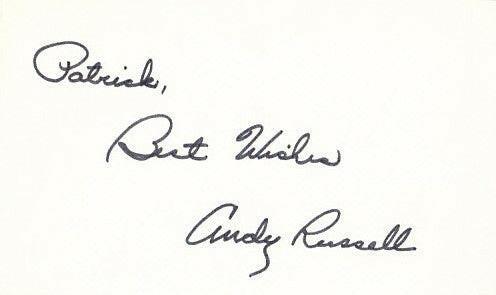 Patrick,
Best Wishes
Andy Russell